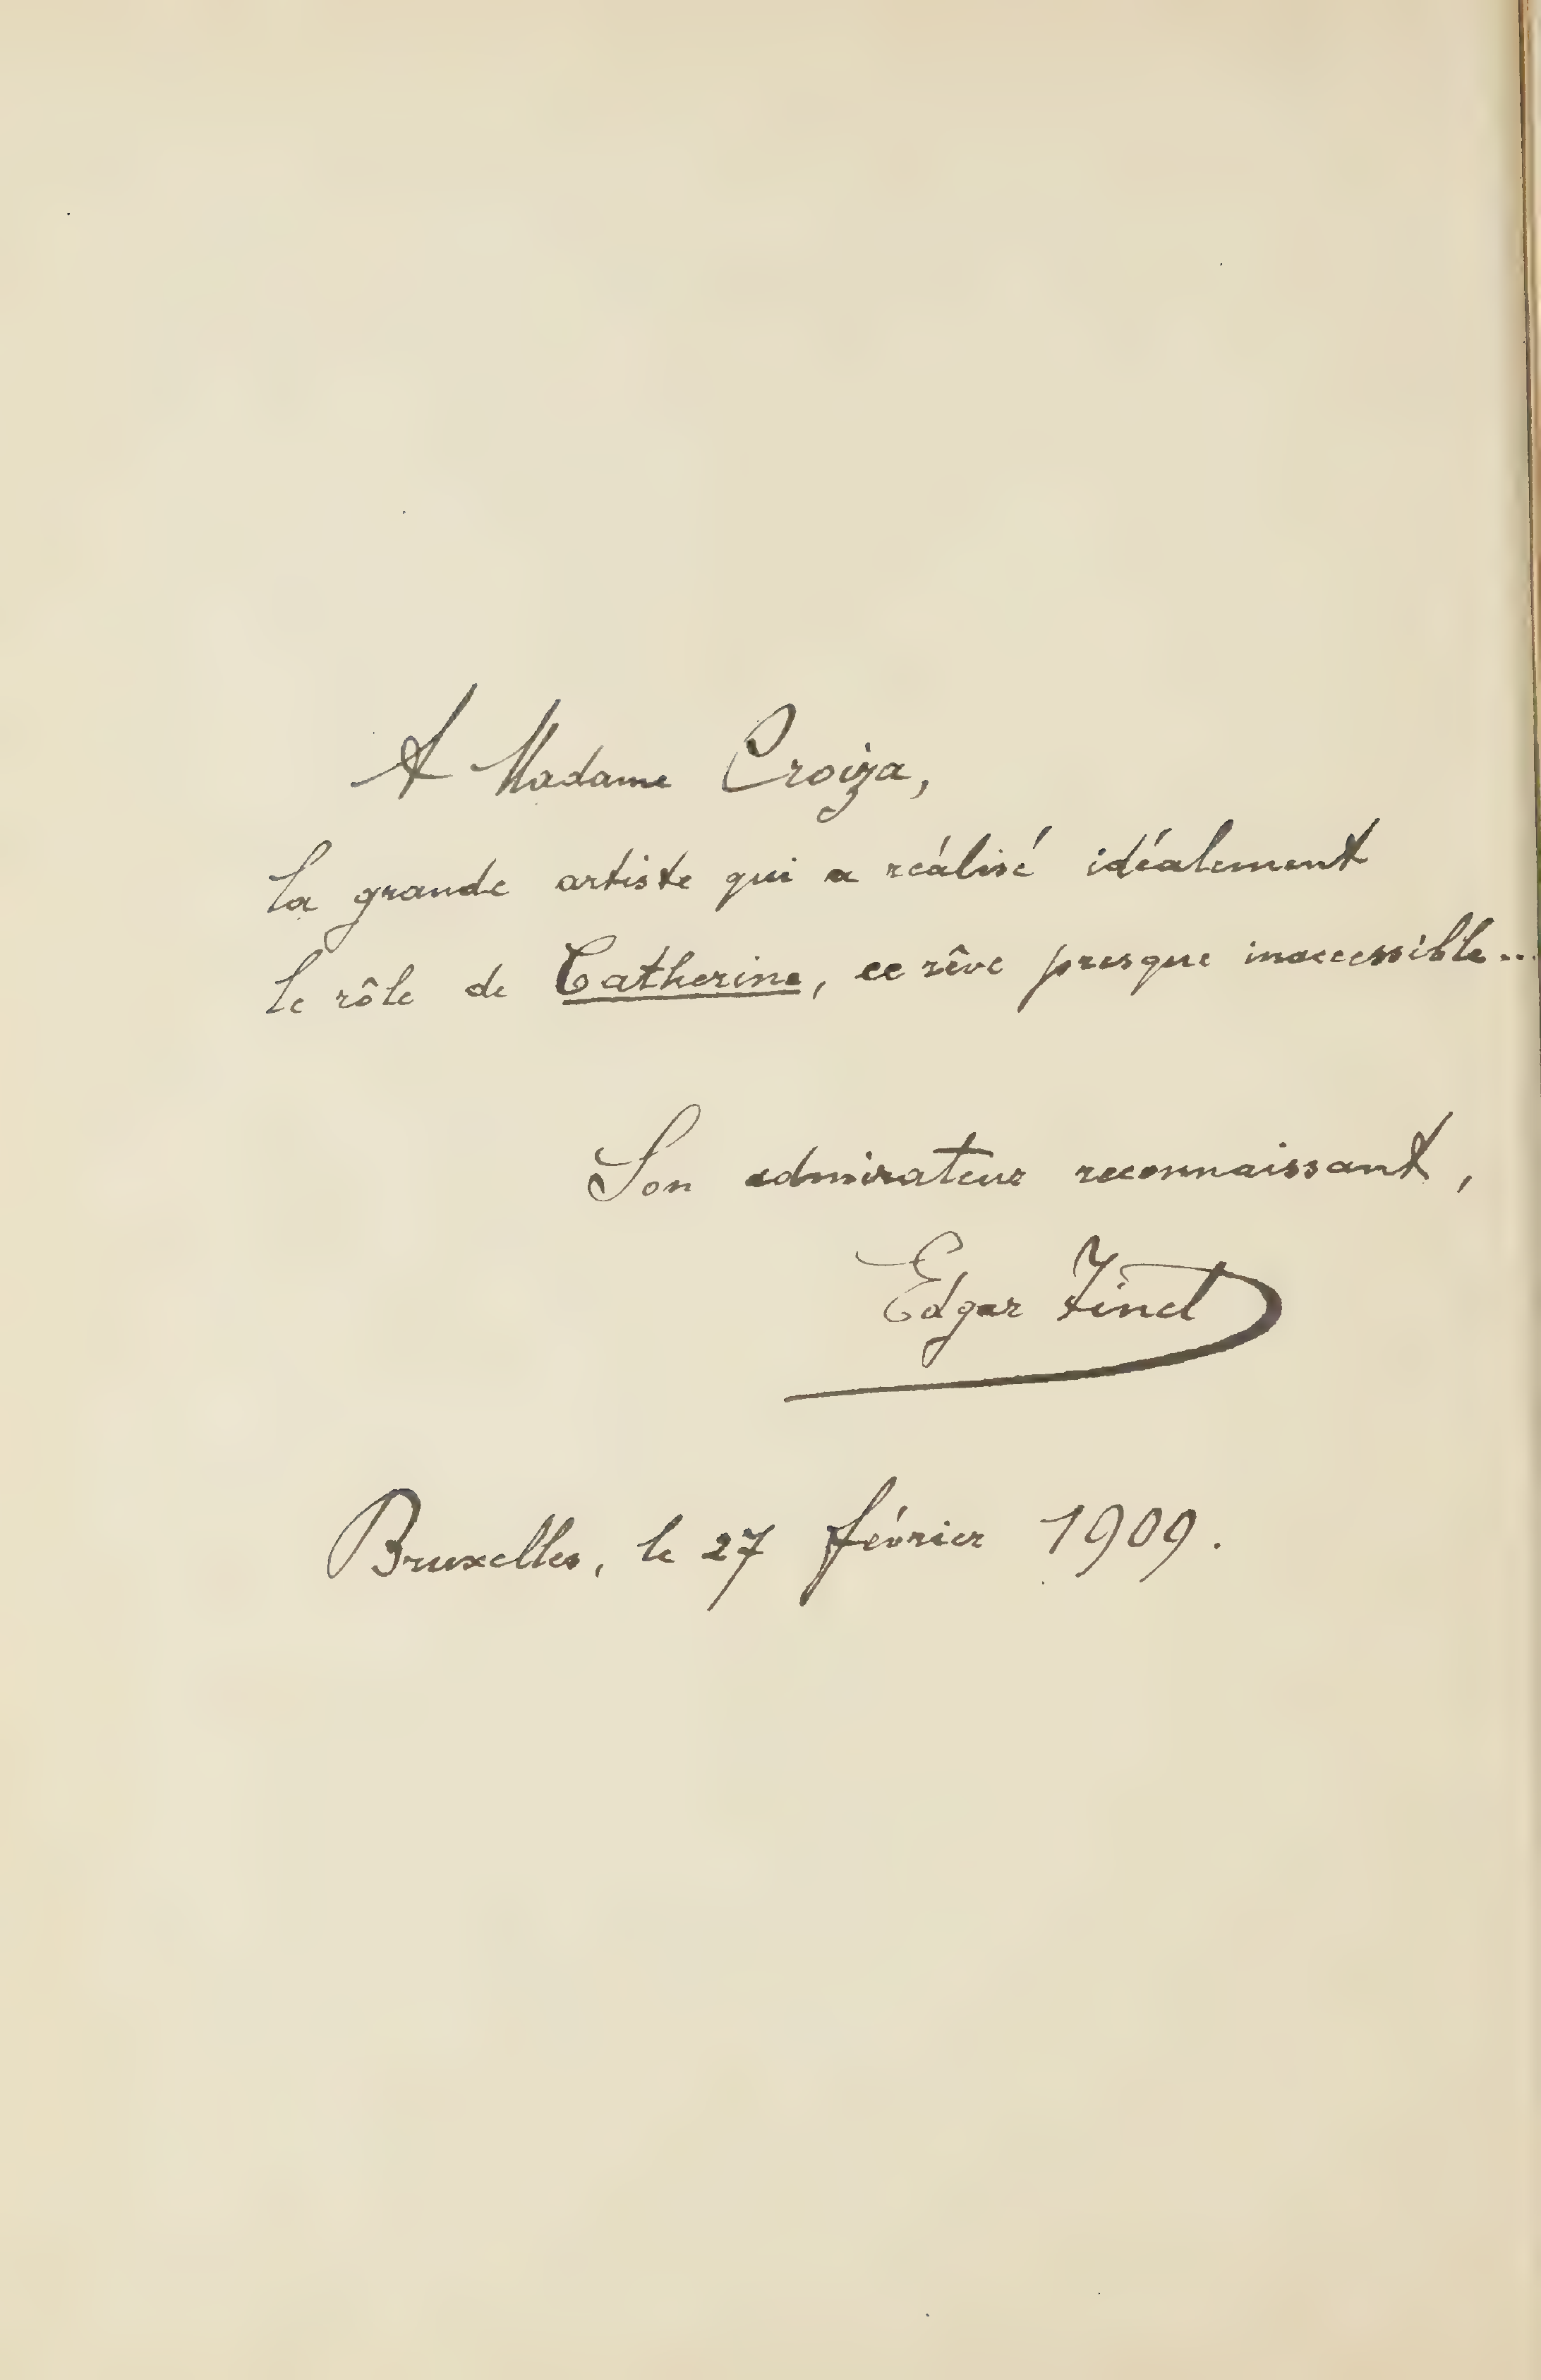 A Madame Croiza,
la grande artiste qui a réalisé idéalement
le rôle de Catherine, ce rêve presque inaccessible...
Son admirateur reconnaissant,
Edgar Tinel
Bruxelles, le 27 février 1909.